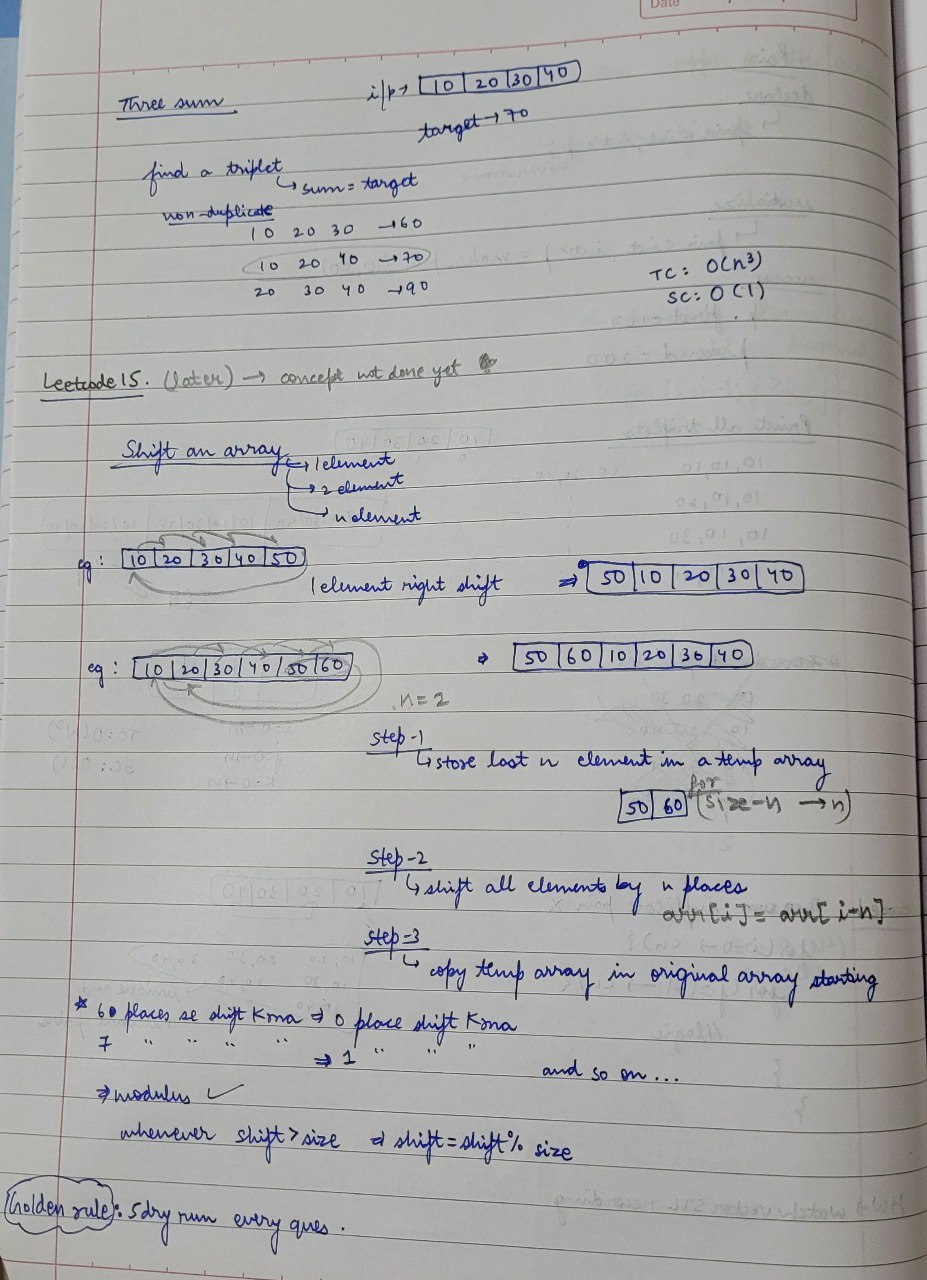 Date
Three sum
i/p → 10 20 30 40
target → 70
find a triplet
↳ sum = target
non-duplicate
10 20 30 → 60
10 20 40 → 70
20 30 40 → 90
TC: O(n³)
SC: O(1)
Leetcode 15. (later) → concept not done yet
Shift an array → 1 element
→ 2 element
→ n element
eg: 10 20 30 40 50
1 element right shift ⇒ 50 10 20 30 40
eg: 10 20 30 40 50 60 ⇒ 50 60 10 20 30 40
n=2
Step-1
↳ store last n element in a temp array
50 60 for (size-n → n)
Step-2
↳ shift all elements by n places
arr[i] = arr[i-n]
Step-3
↳ copy temp array in original array starting
* 60 places se shift Krna ⇒ 0 place shift Krna
7 " " " " ⇒ 1 " " "
and so on...
⇒ modulus ✓
whenever shift > size ⇒ shift = shift % size
Golden rule: 5 dry run every ques.